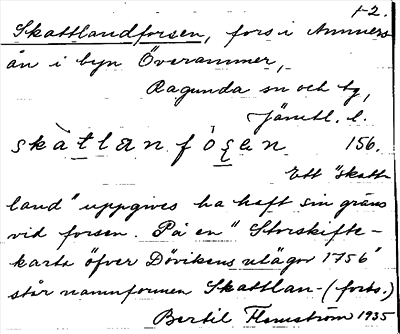 1-2.
Skattlandforsen, fors i Ammers
ån i byn Överammer,
Ragunda sn och tg,
Jämtl. l.
skàtlanfòsen 156.
Ett "skatt
land" uppgives ha haft sin gräns
vid forsen. På en "Storskifte-
karta öfver Dövikens utägor 1756"
står namnformen Skattlan- (forts.)
Bertil Flemström 1935